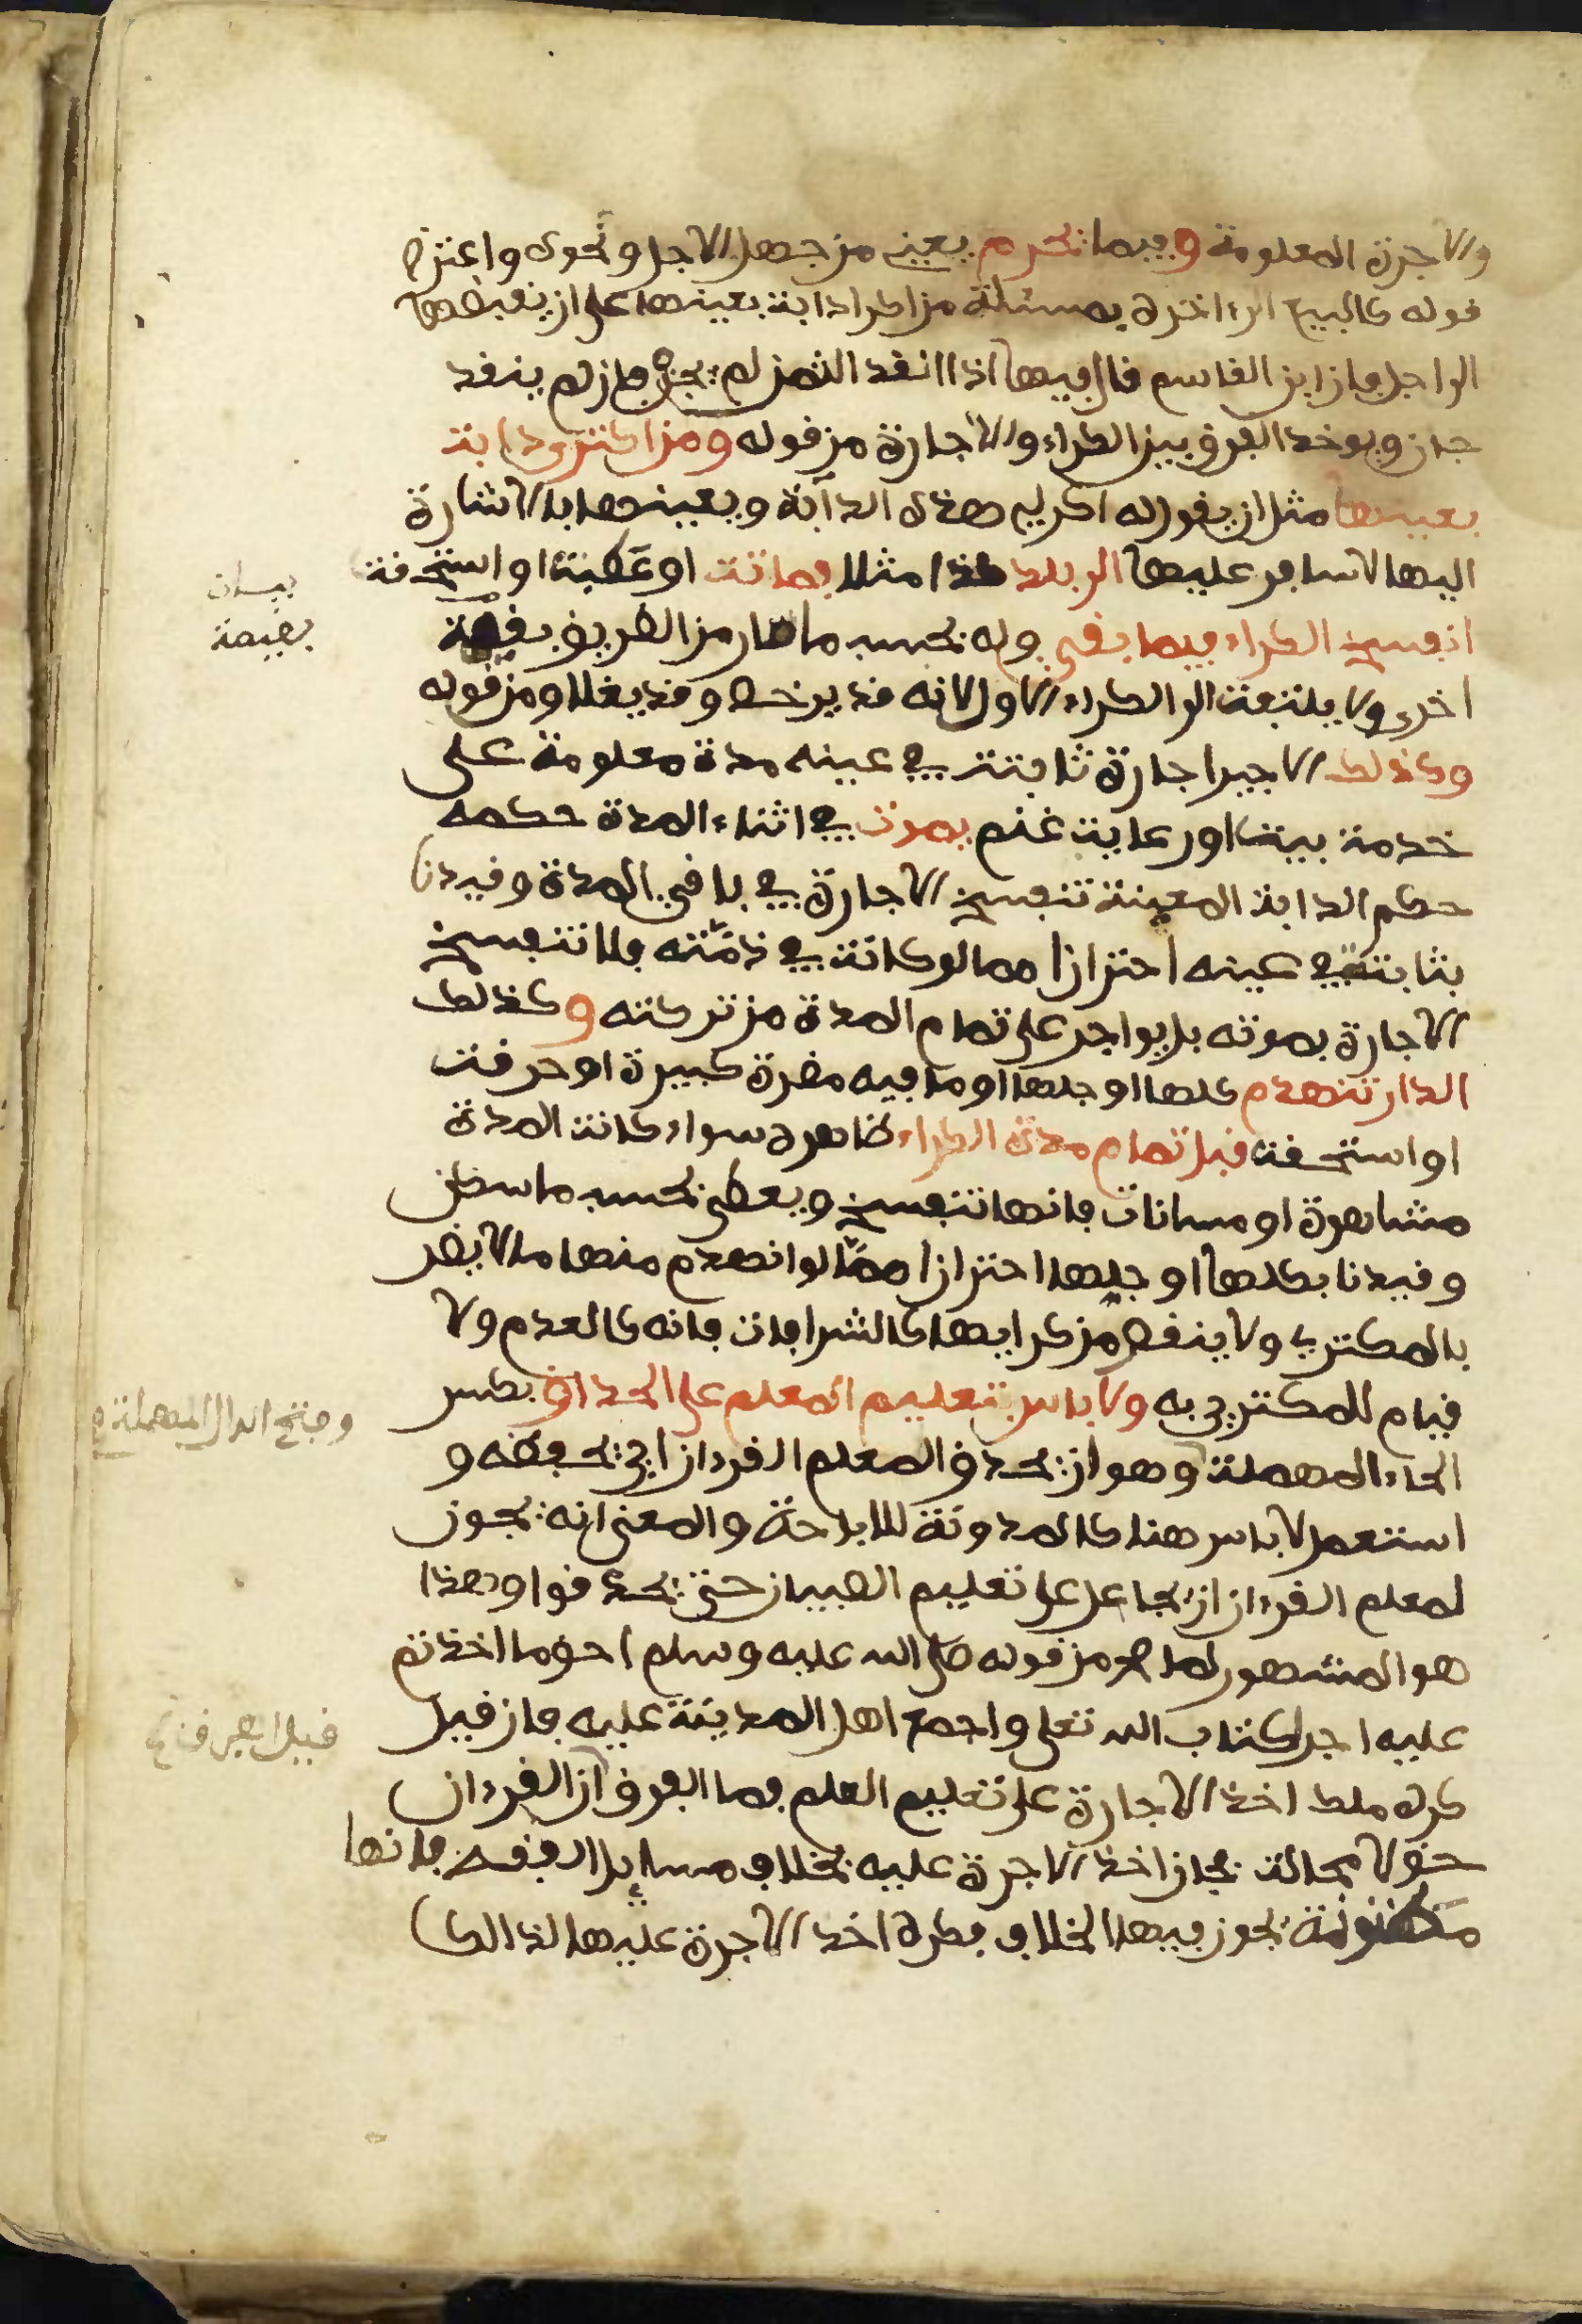 والاجرة المعلومة وفيما يحرم يعني من جهل الاجل ونحوه واعترض
قوله كالبيع الى اخره بمسئلة من اكرى دابة بعينها على ان يقبضها
الى اجل فان ابن القاسم قال فيها اذا انقد الثمن لم يجز فان لم ينقد
جاز ويوخذ الفرق بين الكراء والاجارة من قوله ومن اكترى دابة
بعينها مثل ان يقول له اكر لي هذه الدابة ويعينها بالاشارة
اليها لاسافر عليها الى بلد كذا مثلا فماتت او عطبت او استحقت
انفسخ الكراء فيما بقي وله بحسب ما سار من الطريق بقيمة
اخرى ولا يلتفت الى الكراء الاول لانه قد يرخص وقد يغلا ومن قوله
وكذلك الاجير اجارة ثابتة في عينه مدة معلومة على
خدمة بيت او رعاية غنم يموت في اثناء المدة حكمه
حكم الدابة المعينة تنفسخ الاجارة في باقي المدة وقيدنا
بثابتة في عينه احترازا مما لو كانت في ذمته فلا تنفسخ
الاجارة بموته بل يواجر على تمام المدة من تركته وكذلك
الدار تنهدم كلها او جلها او ما فيه مضرة كبيرة او حرقت
او استحقت قبل تمام مدة الكراء ظاهره سواء كانت المدة
مشاهرة او مسانات فانها تنفسخ ويعطى بحسب ما سكن
وقيدنا بكلها او جلها احترازا مما لو انهدم منها ما لا يضر
بالمكتري ولا ينقص من كرايها كالشرافات فانه كالعدم ولا
قيام للمكتري به ولا باس بتعليم المعلم على الحذاق بكسر
الحاء المهملة وهو ان يحذق المعلم القرءان اي يحفظه و
استعمل لا باس هنا كالمدونة للاباحة والمعنى انه يجوز
لمعلم القرءان ان يجاعل على تعليم الصبيان حتى يحذقوا وهذا
هو المشهور لما صح من قوله صلى الله عليه وسلم احق ما اخذتم
عليه اجرا كتاب الله تعلى واجمع اهل المدينة عليه فان قيل
كره ملك اخذ الاجارة على تعليم العلم فما الفرق ان القرءان
حق لا محالة فجاز اخذ الاجرة عليه بخلاف مسايل الفقه فانها
مظنونة يجوز فيها الخلاف فكره اخذ الاجرة عليها لذالك
بيان
بقيمة
وفتح الدال المهملة